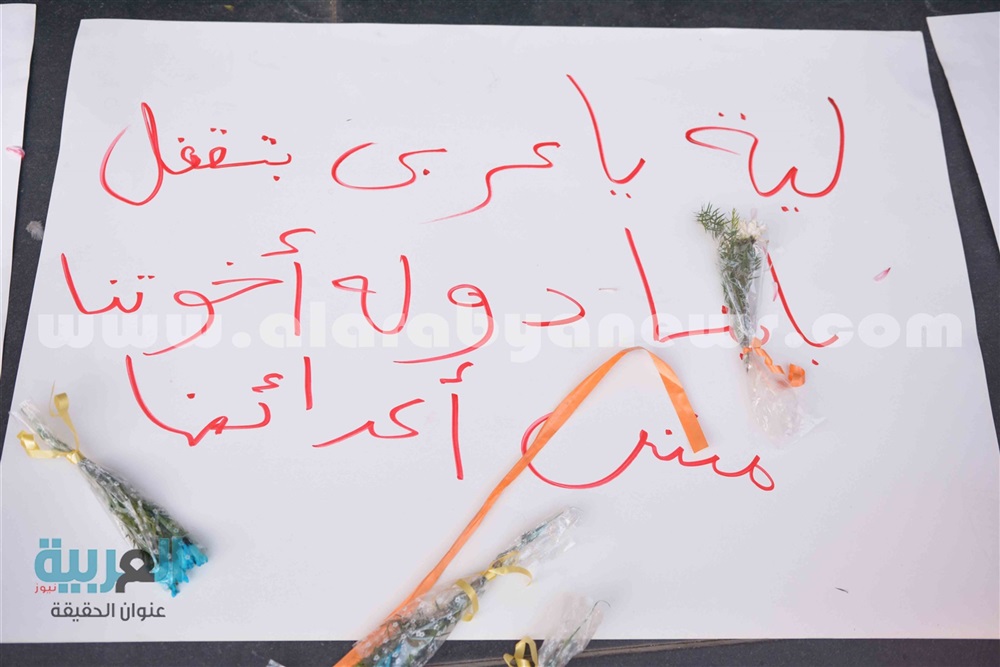 لية يا عربى بتقفل
بابنا دوله أخوتنا
مش أعدائنا
www.alarabyanews.com
العربية
نيوز
عنوان الحقيقة